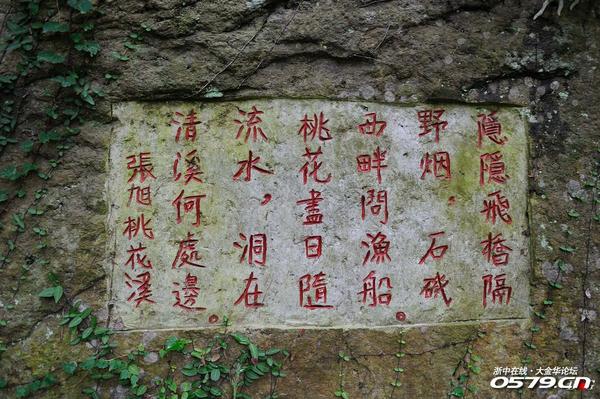 隱隱飛橋隔
野烟，石磯
西畔問漁船。
桃花盡日隨
流水，洞在
清溪何處邊。
張旭桃花溪
浙中在线·大金华论坛
0579.cn